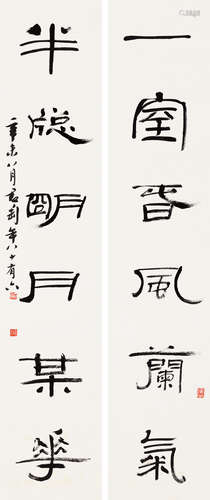 一室香風蘭氣
半牕朙月某華
辛未八月君匋年八十有六